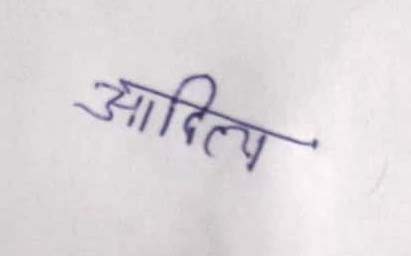 आदित्य